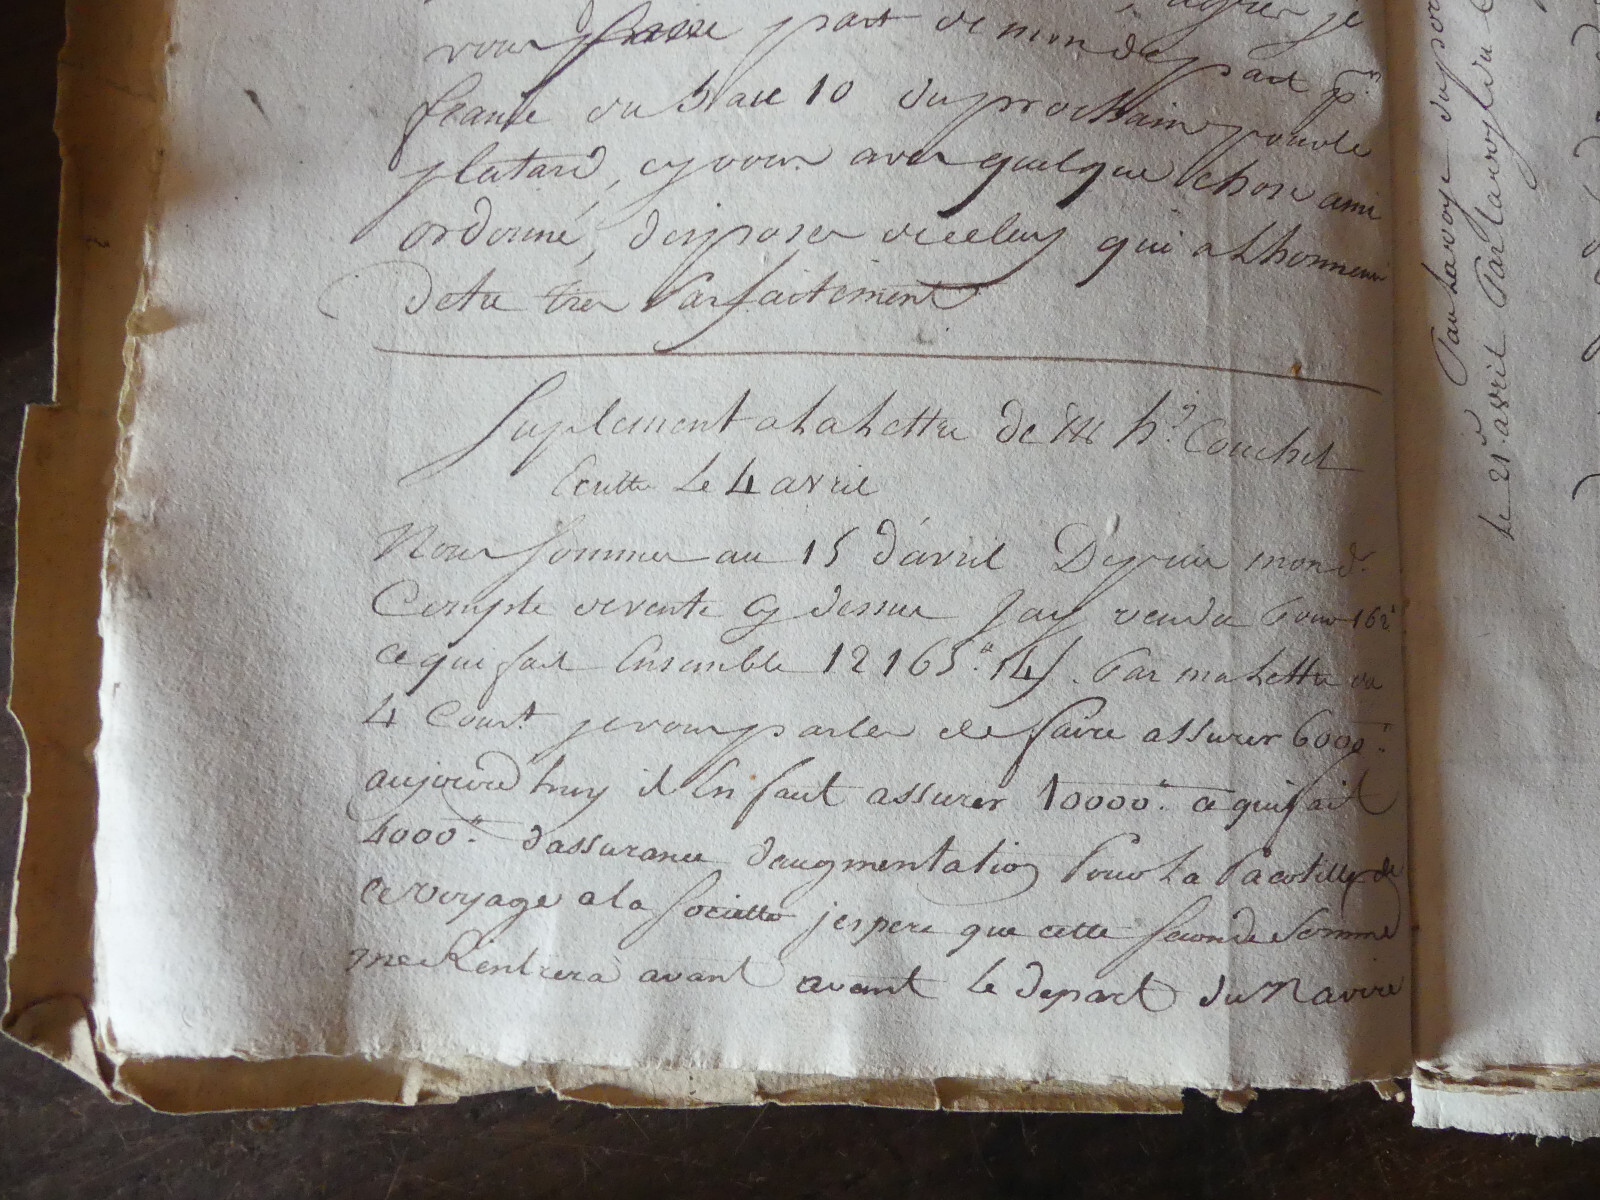 agréer je
vous fasse part de mon depart p.r
france du 5 au 10 du prochain pour le
plutard, sy vous avez quelque chose ami
ordonné, disposer de celuy qui a Lhonneur
detre tres Parfaitement
Suplement a La Lettre de M hy. Couchet
Ecritte Le 4 avril
Nous sommes au 15 d'avril Depuis mon d.
Compte de vente cy dessus Jay vendu Pour 162
ce qui fait Ensemble 12165.# 14s. Par ma Lettre du
4 Court je vous parler de faire assurer 6000.#
aujourd huy il En faut assurer 10000.# ce qui fait
4000.# dassurance daugmentation Pour La Pacotille de
ce voyage a la societte jespere que cette seconde somme
me Rentrera avant avant Le depart du Navire
Par Larroye du port
Le 21 avril Par Larroye du